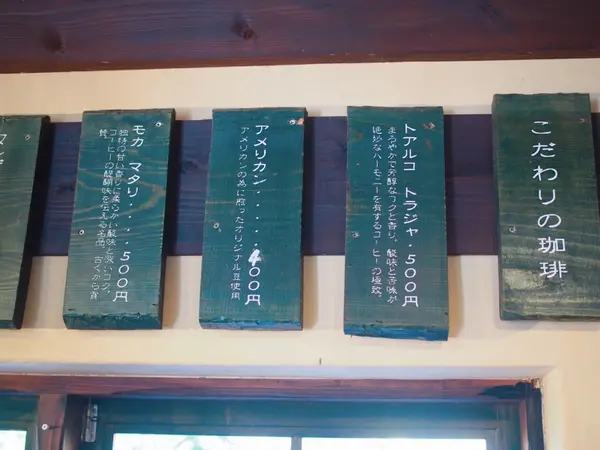 こだわりの珈琲
トアルコ トラジャ・500円
まろやかで芳醇なコクと香り。酸味と苦味が
絶妙なハーモニーを有するコーヒーの極致。
アメリカン・・・・・400円
アメリカンの為に煎ったオリジナル豆使用
モカ マタリ・・・・500円
独特の甘い香りに柔らかい酸味と深いコク、
コーヒーの醍醐味を伝える名品。古くから賞